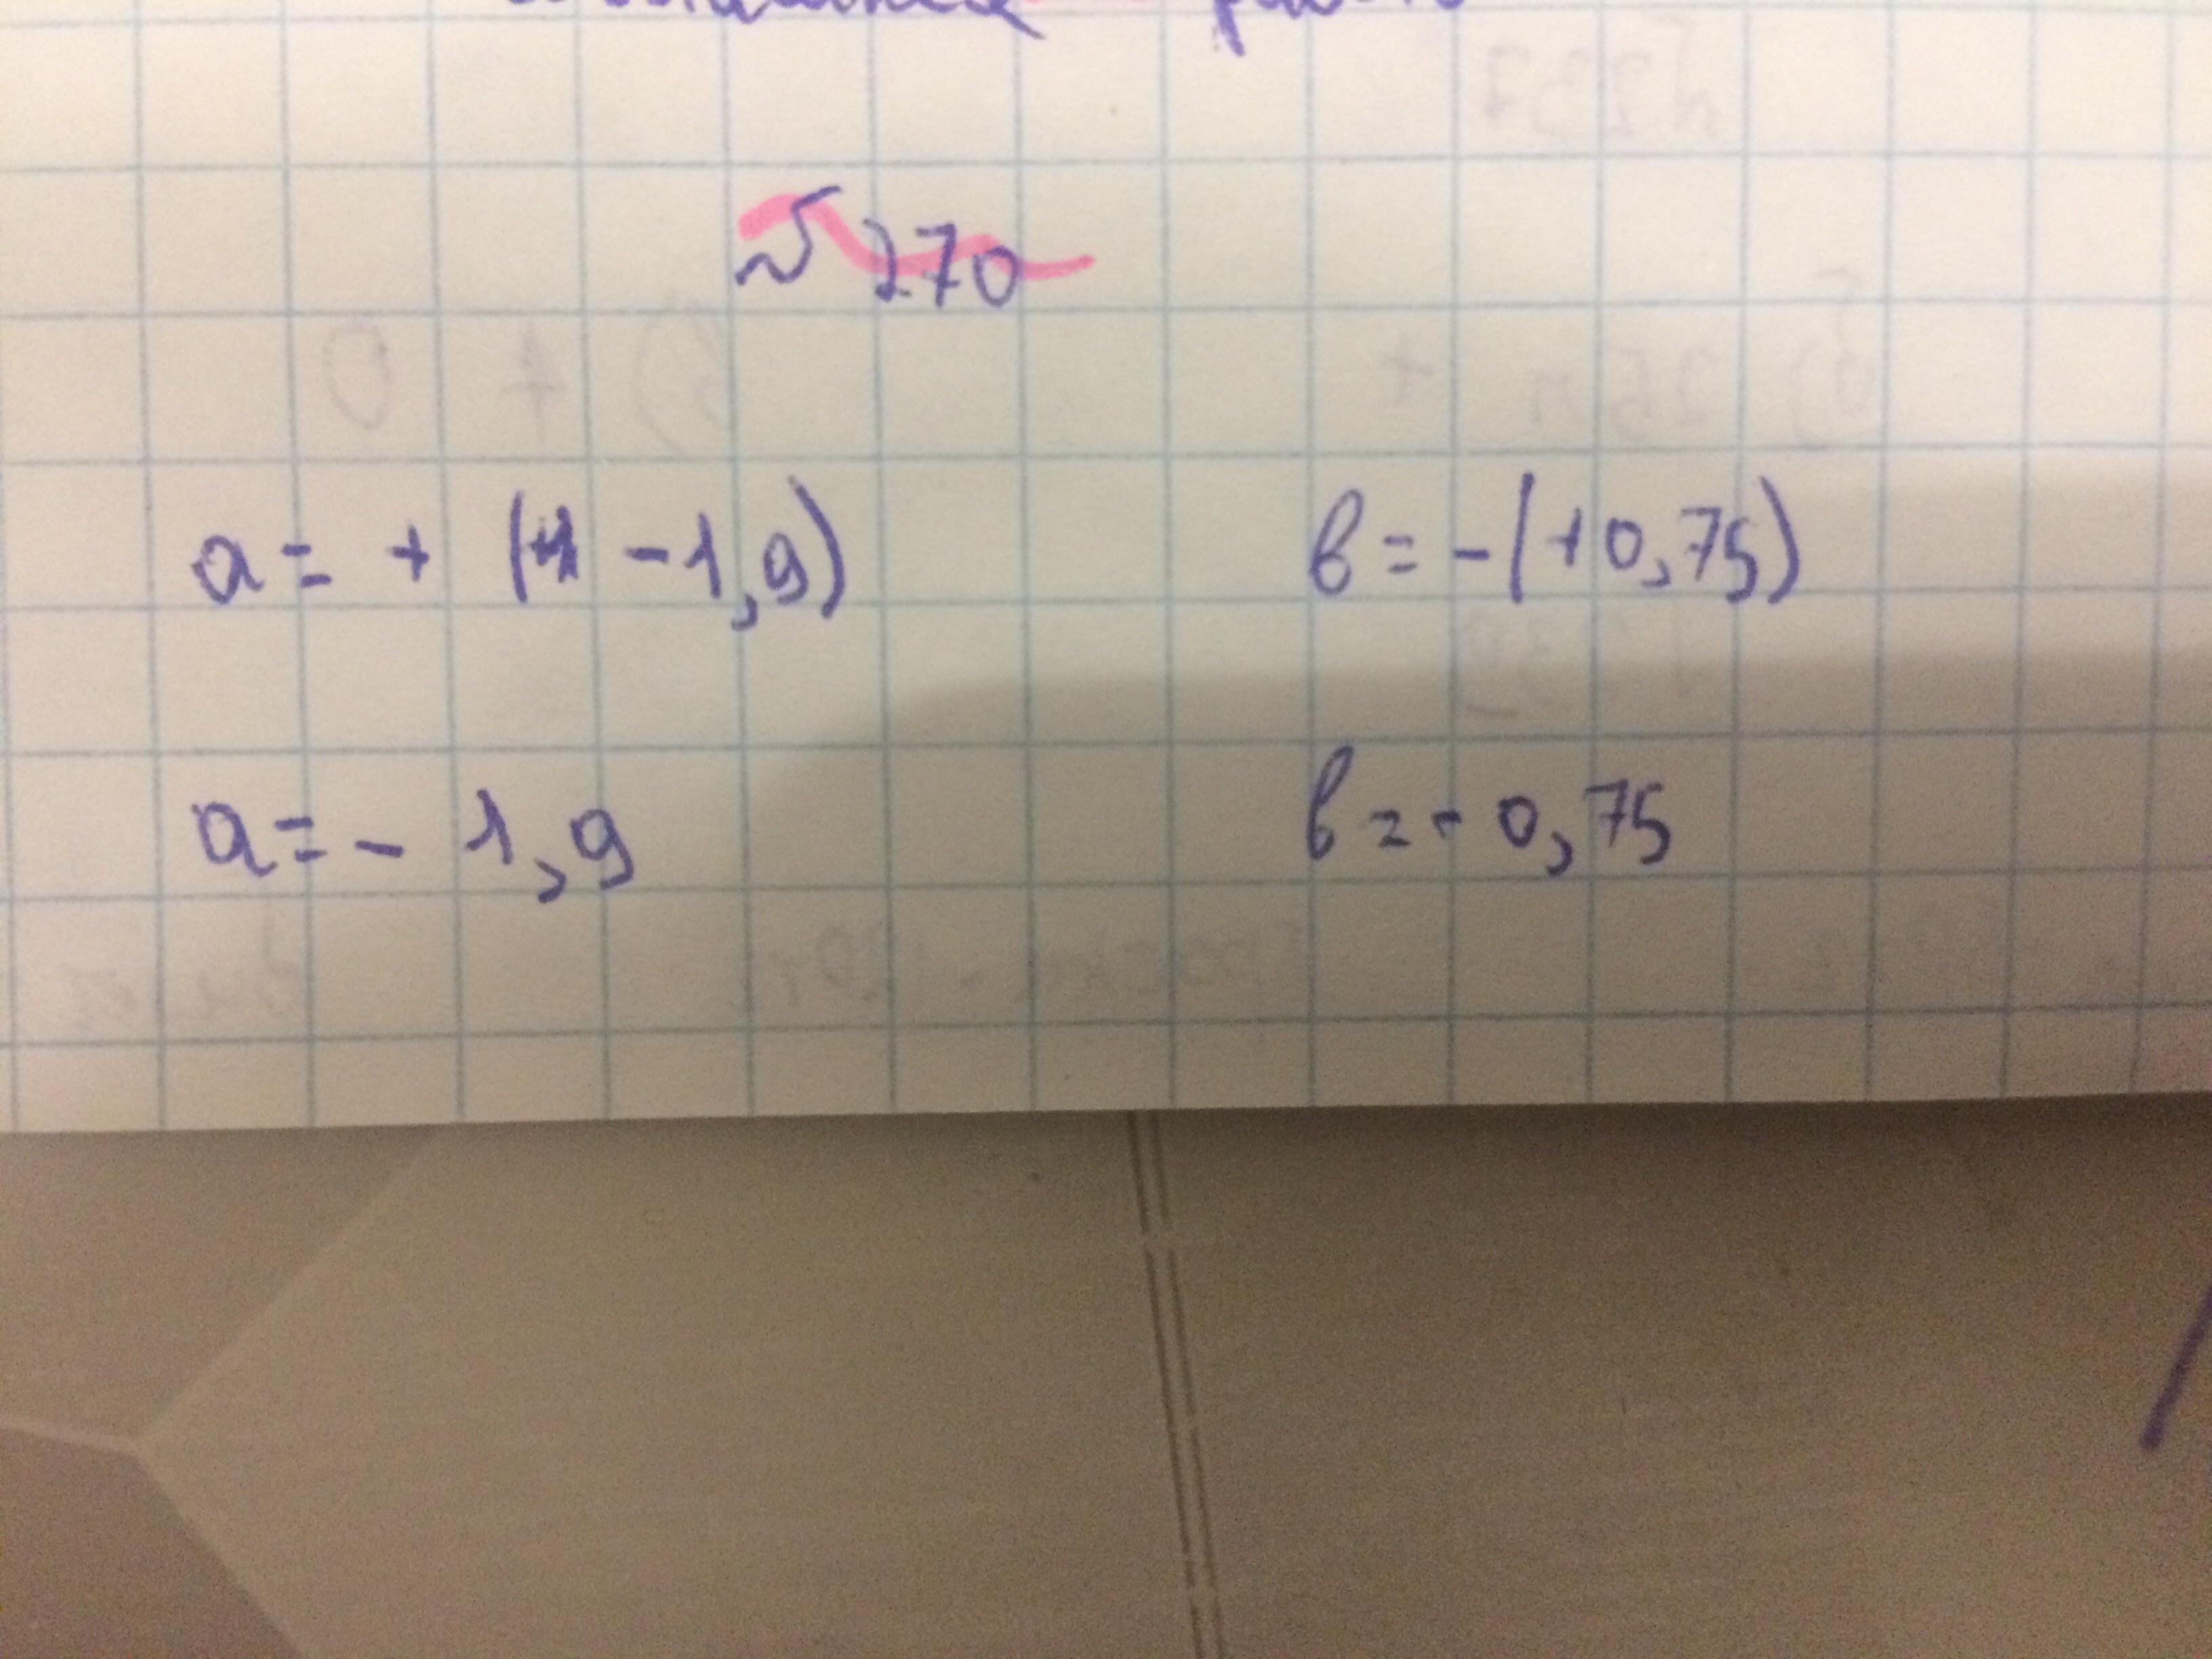 № 270
a = + (-1,9)
в = -(+0,75)
a = - 1,9
в = - 0,75